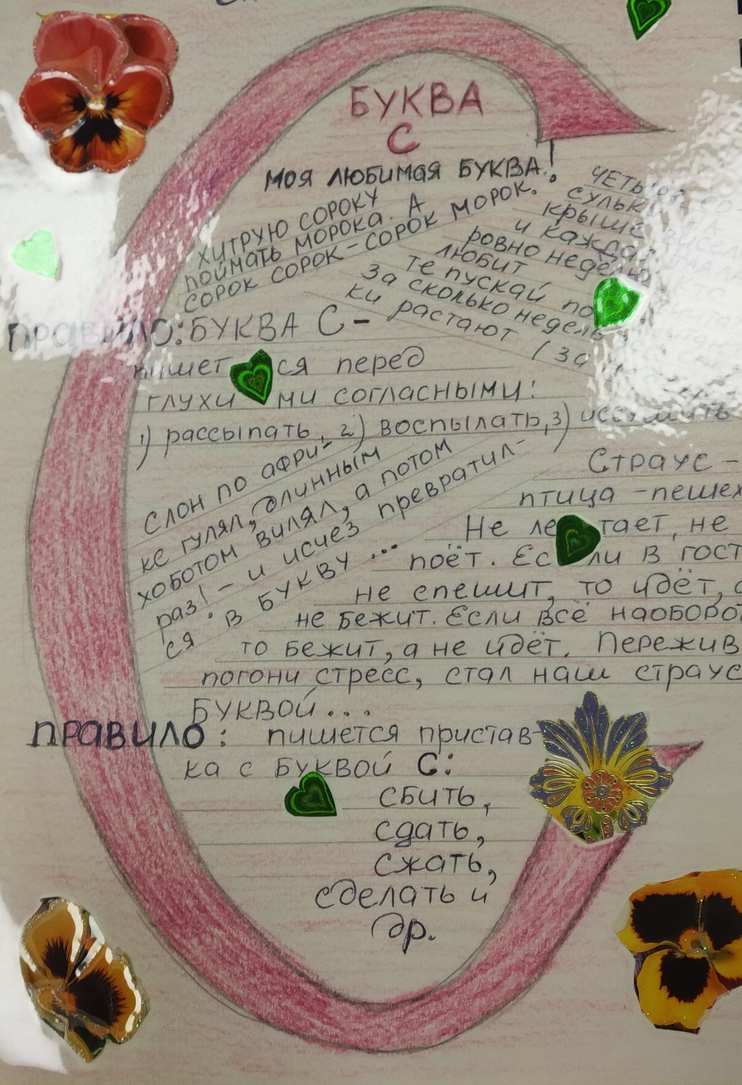 БУКВА
С
МОЯ ЛЮБИМАЯ БУКВА!
ХИТРУЮ СОРОКУ
ПОЙМАТЬ МОРОКА. А
СОРОК СОРОК-СОРОК МОРОК.
СУЛЬК
КРЫШЕ
И КАЖДАЯ
РОВНО НЕДЕЛЮ
ЛЮБИТ
ТЕ ПУСКАЙ ПО
ЗА СКОЛЬКО НЕДЕЛЬ
КИ РАСТАЮТ (ЗА
ПРАВИЛО: БУКВА С-
пишется перед
глухими согласными:
1) рассыпать, 2) воспылать, 3)
Слон по афри-
ке гулял, длинным
хоботом вилял, а потом
раз! - и исчез превратил-
ся в букву...
Страус -
птица-пешех
Не летает, не
поёт. Если в гост
не спешит, то идёт, а
не бежит. Если всё наоборот
то бежит, а не идёт. Пережив
погони стресс, стал наш страус
буквой...
ПРАВИЛО: пишется пристав-
ка с буквой С:
сбить,
сдать,
сжать,
сделать и
др.